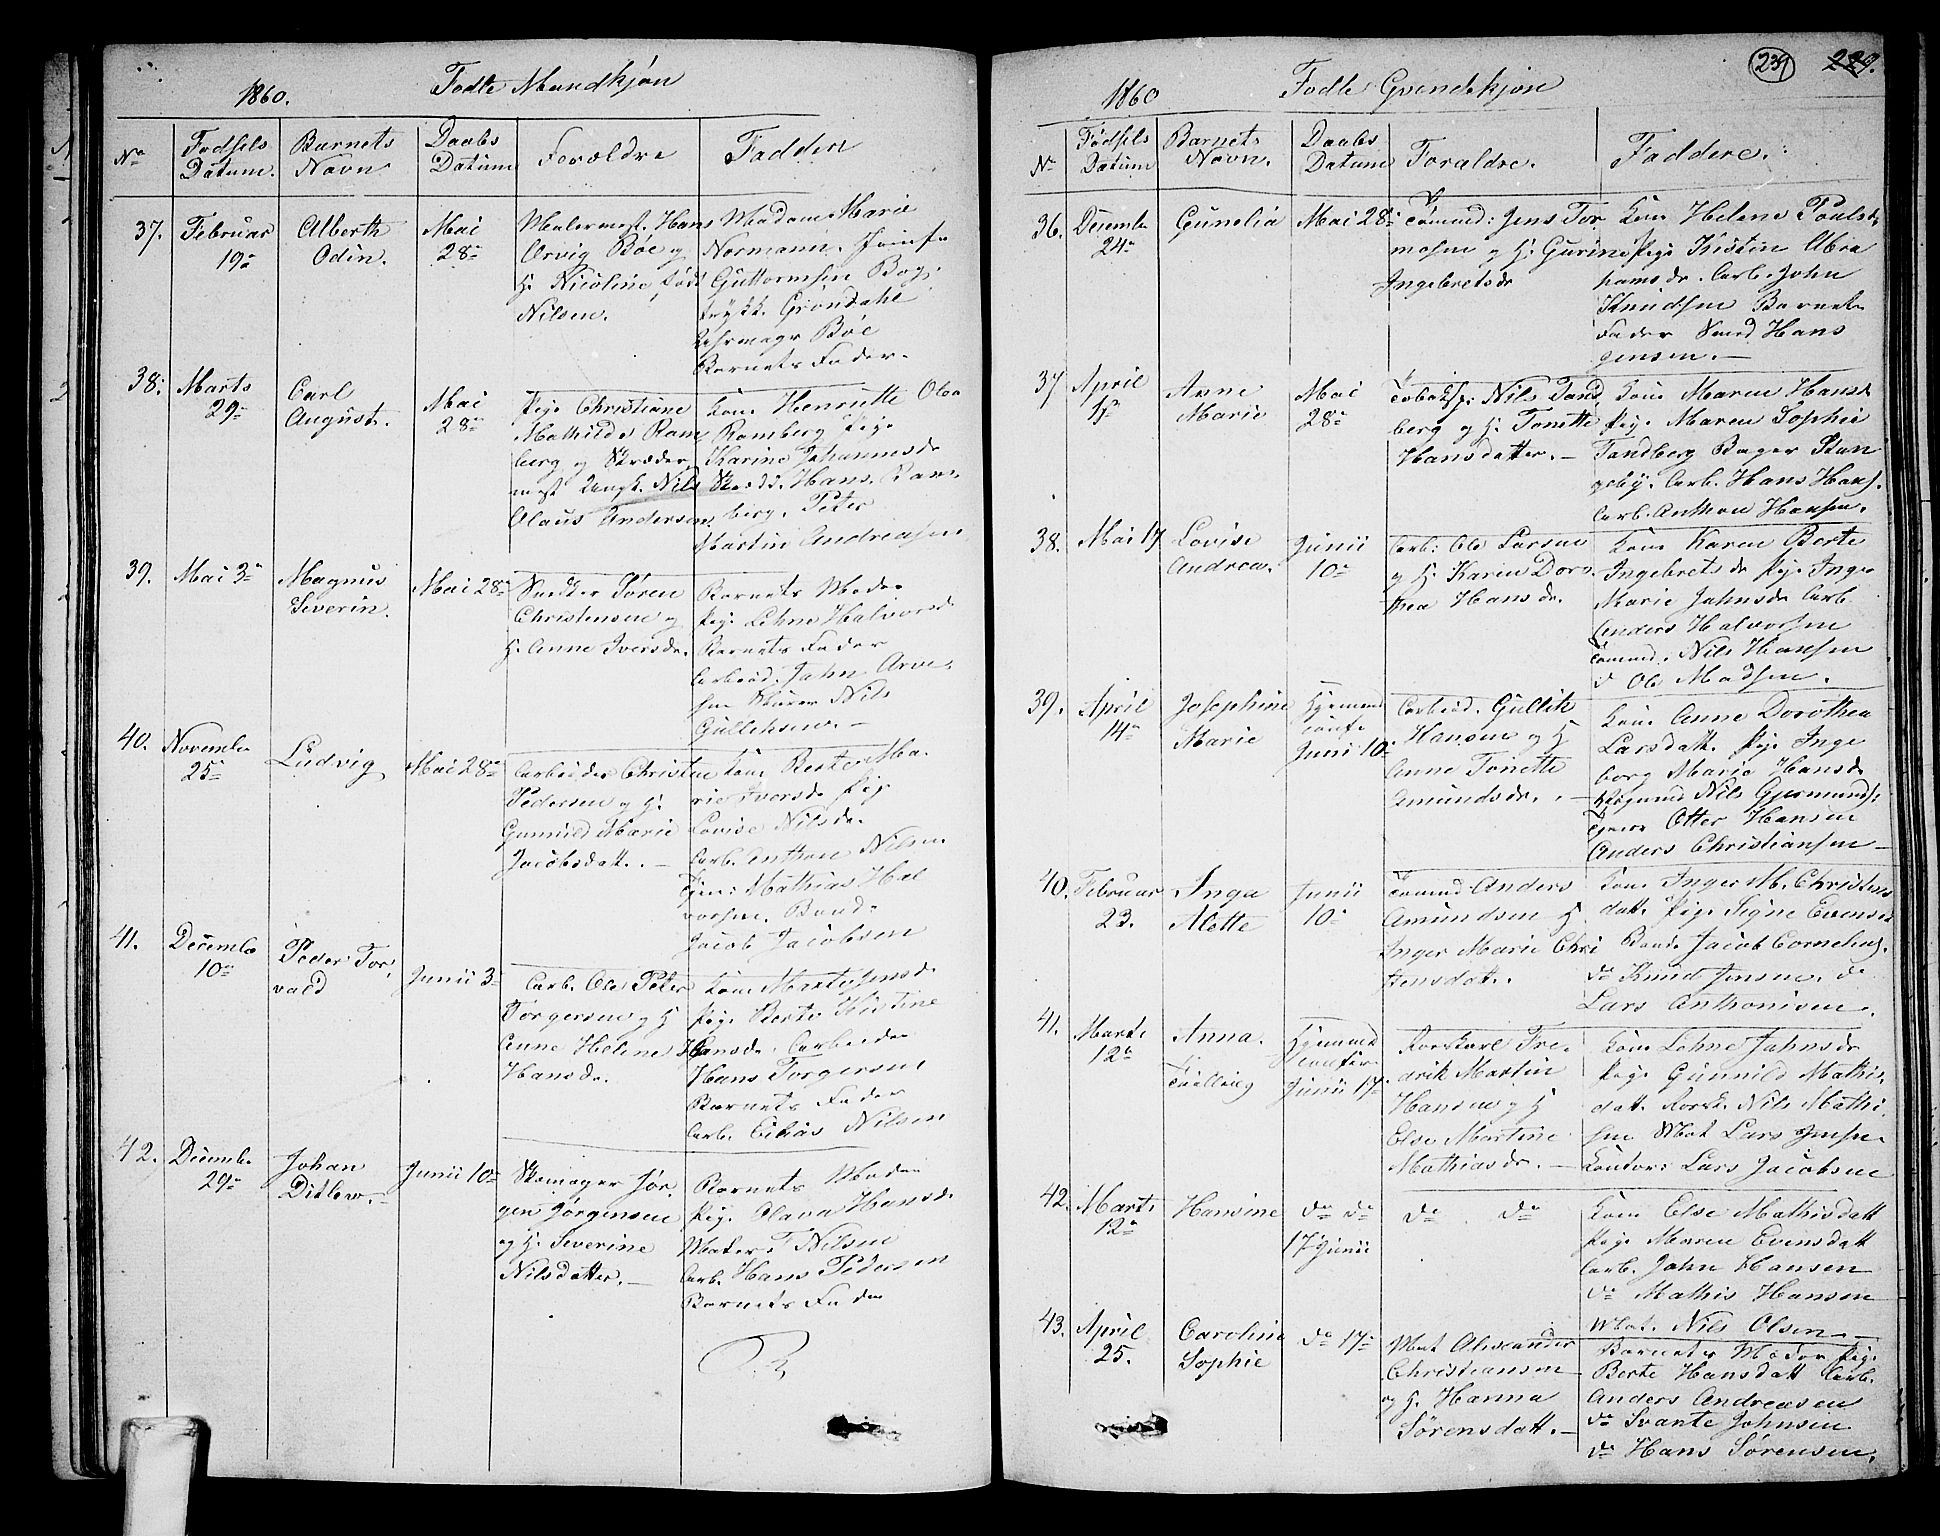 1860. Fodte Mandkjøn
No Fodsels Datum. Barnets Navn Daabs Datum Forældre Fadden
37. Februar 19de Alberth Odin. Mai 28de
Malermest. Hans
Arvig Böe og
H. Nicoline, født
Nilsen.
Madam Marie
Normann. Jomfr
Guttormsen Bog,
trykk. Gröndahl
Uhrmagr Böe
Barnets Fader.
38. Marts 29de Carl August. Mai 28de
Pige Christiane
Mathilde Ram
berg og Skræder,
mest Ungk. Nils
Olaus Andersen
Kone Henriette Olea
Ramberg Pige
Karine Johannesdr
Skrædd. Hans Ram
berg. Peter
Martin Andreasen
39. Mai 3de Magnus Severin. Mai 28de
Snedker Sören
Christensen og
H. Anne Iversdr.
Barnets Moder
Pige Lehne Halvorsdr
Barnets Fader
Arbeid. John Arve,
sen Murer Nils
Gulliksen. —
40. Novemb. 25de Ludvig Mai 28de
Arbeider Christen
Pedersen og H.
Gunnild Marie
Jacobsdatt. —
Kone Berte Ma.
rie Iversdr Pige
Lovise Nilsdr.
Arb. Anthon Nilsen.
Tjen: Mathias Hal
vorsen. Bond.
Jacob Jacobsen
41. Decembr 10de Peder Tor,
vald Junii 3de
Arb. Ole Peter
Torgersen og H
Anne Helene
Hansdr.
Kone Marte Jensdr
Pige Berte Kistine
Hansdr. Arbeider
Hans Torgersen
Barnets Fader
Arb. Elias Nilsen
42. Decembr 29de Johan Ditlew. Junii 10de
Skomager Jør,
gen Jørgensen
og H. Severine
Nilsdatter. —
Barnets Moder
Pige Olava Hansdr
Mater: Nilsen
Arb. Hans Pedersen
Barnets Fader
239 229.
1860 Fodte Qvindekjøn
No Fødsels Datum Barnets Navn. Daabs Datum Foraldre. Faddere.
36. Decembr 24de Gunelia Mai 28de
Tömmd: Jens Tor
mosen og H. Gurine
Ingebretsdr
Kone Helene Poulsdr
Pige Kistin Abra
hamsdr. Arb. John
Knudsen Barnets
Fader Smed Hans
Jensen. —
37 April 1de Anne Marie Mai 28de
Tobaksp: Nils Tand
berg og H. Tonette
Hansdatter. —
Kone Maren Hansdr
Pige Maren Sophie
Tandberg Bager Stan
geby. Arb. Hans Hans.
Arb. Anthon Hansen.
38. Mai 17 Lovise Andrea. Junii 10de
Arb: Ole Larsen
og H. Karen Doro
thea Hansdr.
Kone Karen Berte
Ingebretsdr Pige Inge
Marie Jahnsdr Arb
Anders Halvorsen
Tömmd. Nils Hansen
d Ole Madsen.
39. April 14de Josephine Marie Hjemme
døbt
Junii 10de
Arbeid. Gullik
Hansen og H
Anne Tonette
Amundsdr. —
Kone Anne Dorothea
Larsdatt. Pige Inge
borg Marie Hansdr
Nils Gjermunds.
Tjener Otter Hansen
Anders Christiansen —
40. Februar 23. Inga Alette Junii 10de
Tömmd Anders
Amundsen H
Inger Marie Chri
stensdatt.
Kone Inger M. Christens
datt. Pige Signe Evensd
Bonde Jacob Cornelius.
do Knud Jensen. do
Lars Anthonisen.
41. Marts 12de Anna.
Tvilling Hjemme
døbt
Junii 17de
Rorskarl Fre.
drik Martin
Hansen og H
Else Martine
Mathiasdr. —
Kone Lehne Jahnsdr
Pige Gunnild Mathis,
datt. Rorsk. Nils Mathi
sen Mat Lars Jensen
Kontor: Lars Jacobsen
42. Marts 12de Hansine do do
17 Junii do do
Kone Else Mathisdatt
Pige Maren Evensdatt
Arb. John Hansen
do Mathis Hansen
Mat. Nils Olsen. —
43. April 25. Caroline Sophie do 17de
Mat Alexander
Christiansen
og H. Hanna
Sörensdatt. —
Barnets Moder Pige
Berte Hansdatt Arb.
Anders Andreasen
do Svante Johnsen
do Hans Sörensen.